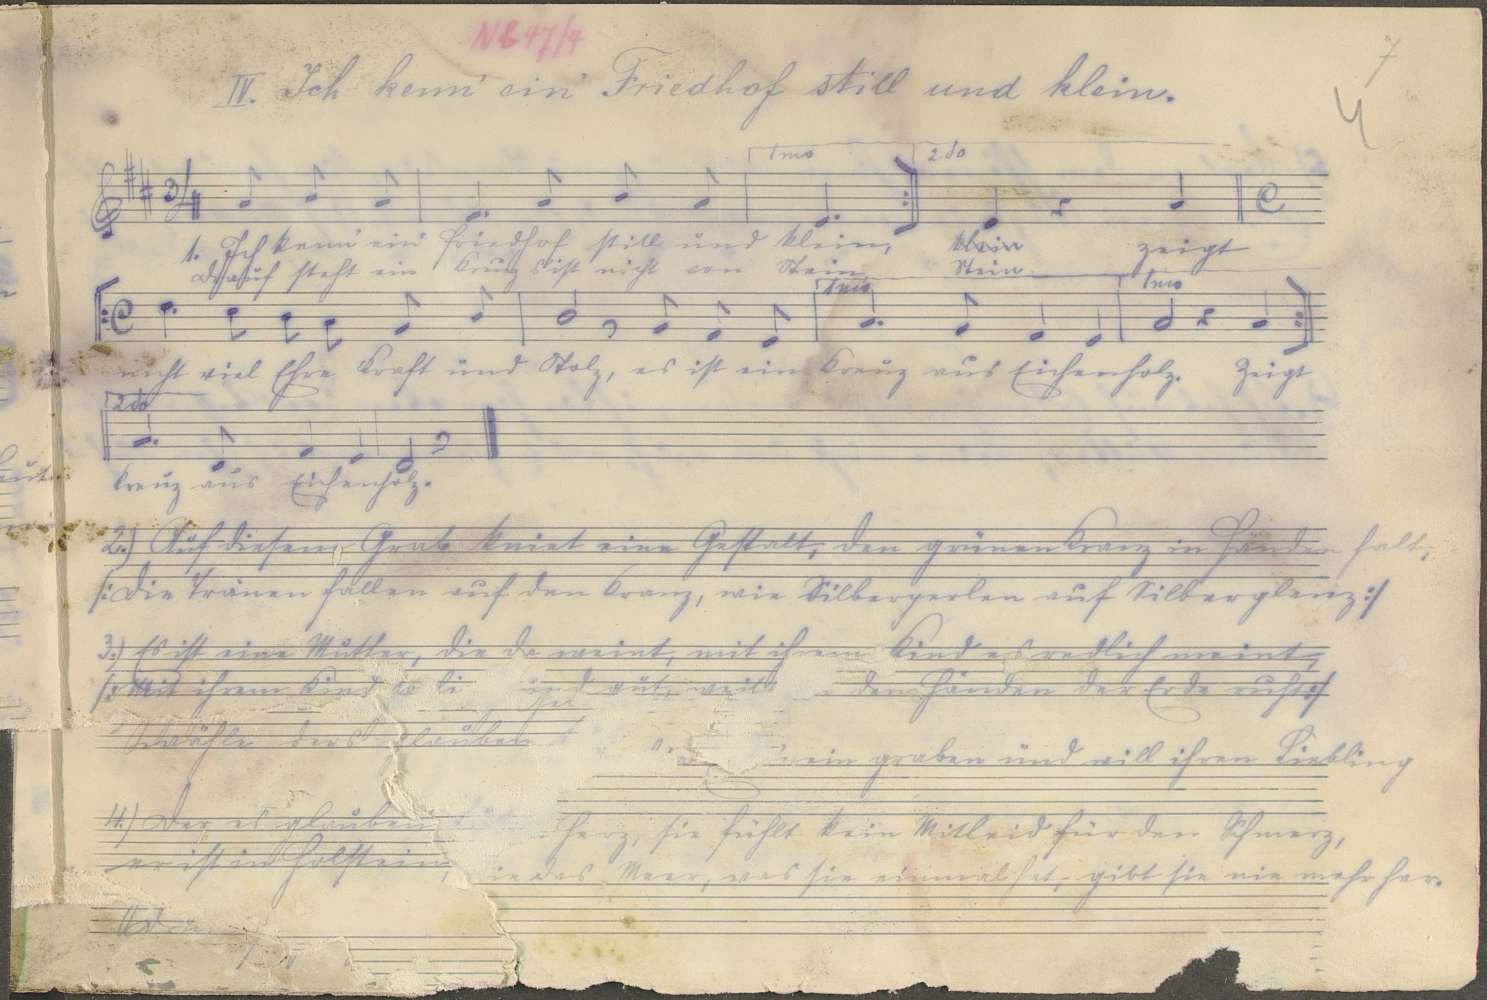 NB 47/4
7
IV. Ich kenn' ein' Friedhof still und klein.
4
1mo 2.do
1. Ich kenn' ein' Friedhof still und klein, klein zeigt
Drauf steht ein Kreuz s'ist nicht von Stein Stein
1mo 1mo
nicht viel Ehre Kraft und Stolz, es ist ein Kreuz aus Eichenholz. Zeigt
2do
Kreuz aus Eichenholz.
2.) Auf diesem Grab kniet eine Gestalt, den grünen Kranz in Händen halt,
/: Die Tränen fallen auf den Kranz, wie Silberperlen auf Silberglanz :/
3.) Es ist eine Mutter, die da weint, mit ihrem Kind es redlich meint,
/: Mit ihrem Kind so und gut, weil den Händen der Erde ruht :/
glauben
ein graben und will ihren Liebling
4.) Der es glauben Herz, sie fühlt kein Mitleid für den Schmerz,
er ist in Holstein, wie das Meer, was sie einmal hat, gibt sie nie mehr her.